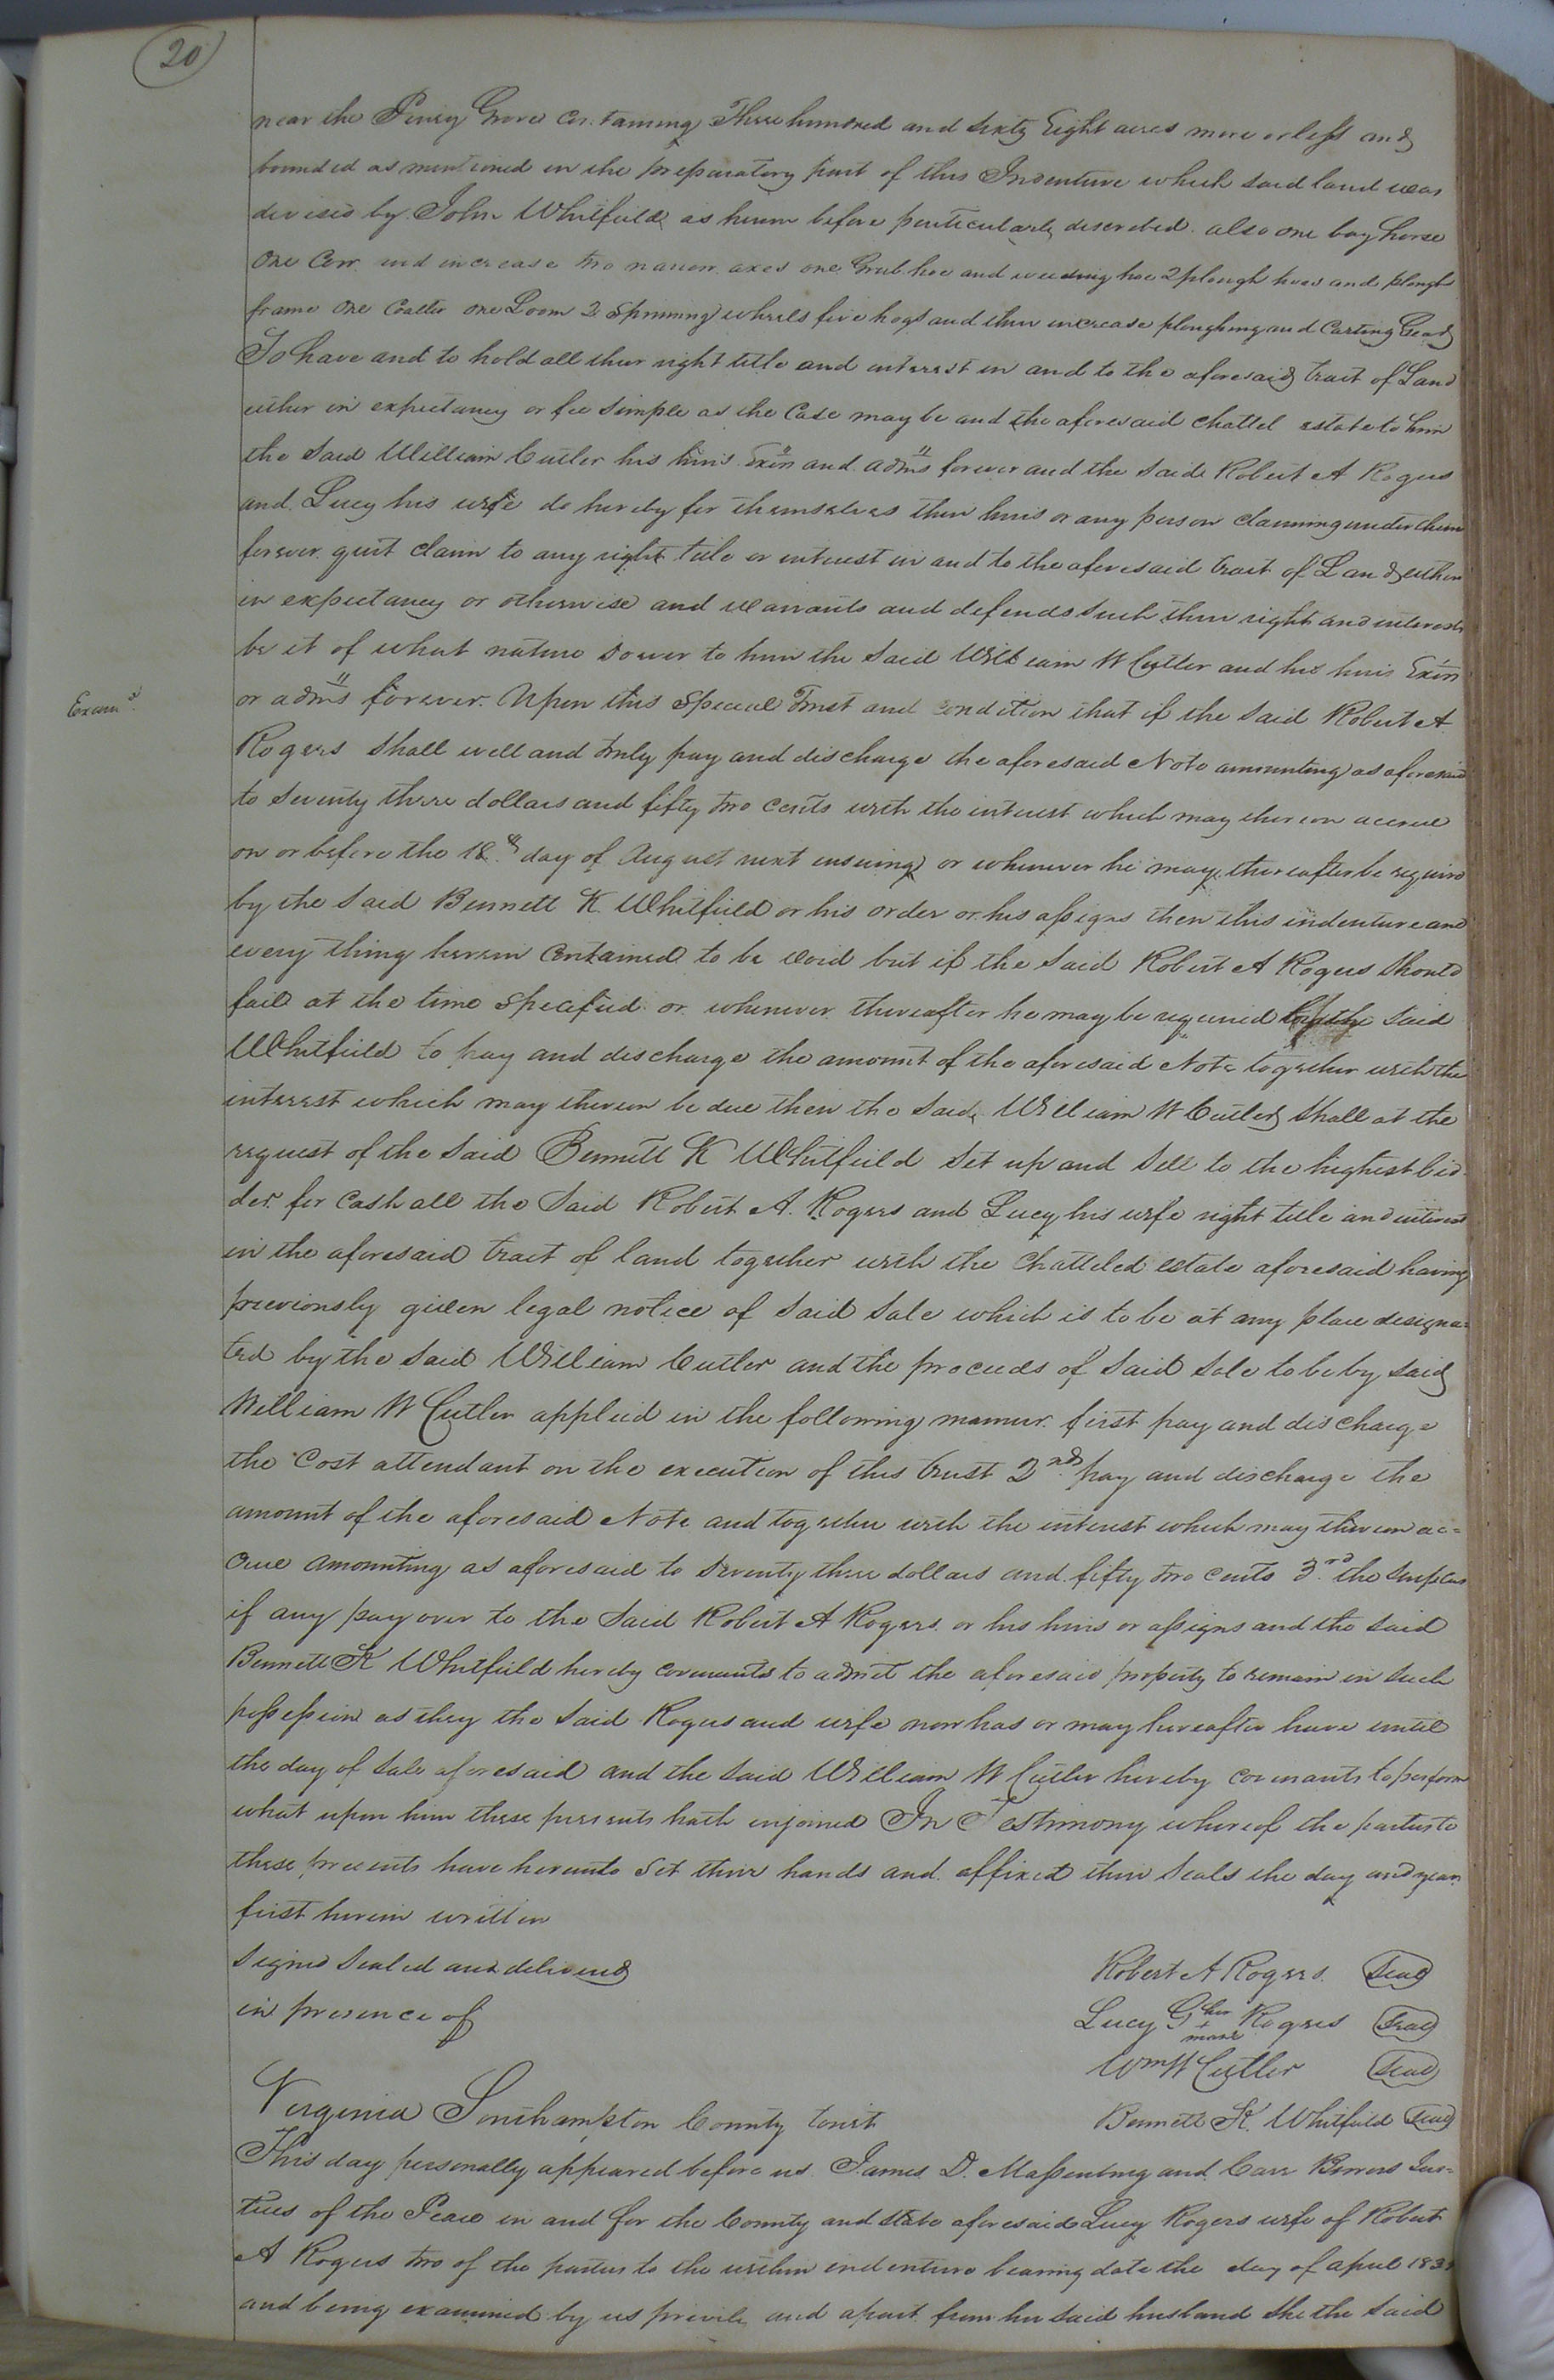 20
near the Piney Grove containing Three hundred and sixty Eight acres more or less and
bounded as mentioned in the preparatory part of this Indenture which said land was
devised by John Whitfield as herein before particularly described also one bay horse
One Cow and increase two narrow axes one Grub hoe and weeding hoe 2 plough hoes and plough
frame One Coalter One Loom 2 Spinning wheels five hogs and their increase ploughing and Carting Gear
To have and to hold all their right title and interest in and to the aforesaid tract of Land
either in expectancy or fee simple as the Case may be and the aforesaid chattel estate to him
the Said William Cutler his heirs Exors and adms forever and the Said Robert A Rogers
and Lucy his wife do hereby for themselves their heirs or any person claiming under them
forever quit claim to any right title or interest in and to the aforesaid tract of Land either
in expectancy or otherwise and warrants and defends such their right and interest
be it of what nature soever to him the Said William W Cutler and his heirs Exors
Examd
or adms forever. Upon this Special Trust and condition that if the Said Robert A
Rogers Shall well and truly pay and discharge the aforesaid Note amounting as aforesaid
to Seventy three dollars and fifty two cents with the interest which may thereon accrue
on or before the 18th day of August next ensuing or whenever he may thereafter be require
by the Said Bennett K. Whitfield or his order or his assigns then this indenture and
every thing herein Contained to be void but if the Said Robert A Rogers Should
fail at the time Specified or whenever thereafter he may be required by the Said
Whitfield to pay and discharge the amount of the aforesaid Note together with the
interest which may thereon be due then the Said William W Cutler Shall at the
request of the Said Bennett K Whitfield Set up and Sell to the highest bid
der for Cash all the Said Robert A. Rogers and Lucy his wife right title and interest
in the aforesaid tract of land together with the Chatteled estate aforesaid having
previously given legal notice of Said Sale which is to be at any place designa=
ted by the Said William Cutler and the proceeds of Said Sale to be by Said
William W Cutler applied in the following manner. first pay and discharge
the Cost attendant on the execution of this trust 2nd pay and discharge the
amount of the aforesaid Note and together with the interest which may thereon ac=
crue amounting as aforesaid to Seventy three dollars and fifty two cents 3rd the Surplus
if any pay over to the Said Robert A Rogers or his heirs or assigns and the Said
Bennett K Whitfield hereby covenants to admit the aforesaid property to remain in Such
possession as they the Said Rogers and wife now has or may hereafter have until
the day of Sale aforesaid and the Said William W Cutler hereby covenants to perform
what upon him these presents hath enjoined In Testimony whereof the parties to
these presents have hereunto Set their hands and affixed their Seals the day and year
first herein written
Signed Sealed and delivered
in presence of
Robert A Rogers. Seal
Lucy G her + mark Rogers Seal
Wm W Cutler Seal
Bennett K. Whitfield Seal
Virginia Southampton County towit
This day personally appeared before us James D. Massenburg and Carr Bowers Jus=
tices of the Peace in and for the County and State aforesaid Lucy Rogers wife of Robert
A Rogers two of the parties to the within indenture bearing date the day of april
and being examined by us privily and apart from her Said husband She the Said